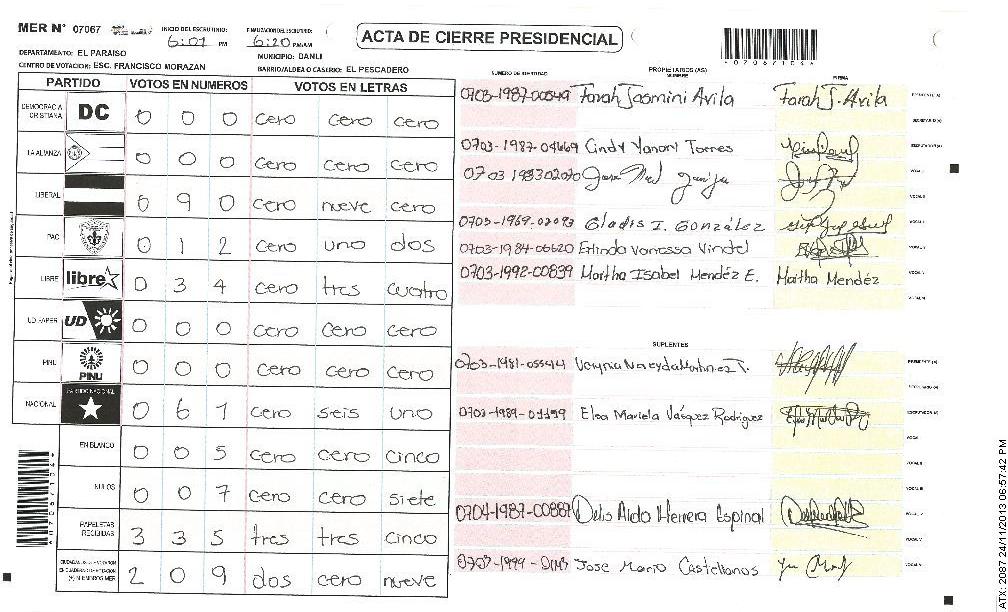 MER N° 07067
INICIO DEL ESCRUTINIO: 6:01 PM
FINALIZACION DEL ESCRUTINIO: 6:20 PM/AM
ACTA DE CIERRE PRESIDENCIAL
DEPARTAMENTO: EL PARAISO
MUNICIPIO: DANLI
CENTRO DE VOTACION: ESC. FRANCISCO MORAZAN
BARRIO/ALDEA O CASERIO: EL PESCADERO
PARTIDO VOTOS EN NUMEROS VOTOS EN LETRAS
DEMOCRACIA CRISTIANA DC 0 0 0 cero cero cero
LA ALIANZA 0 0 0 cero cero cero
LIBERAL 0 9 0 cero nueve cero
PAC 0 1 2 cero uno dos
LIBRE libre 0 3 4 cero tres cuatro
UD FAPER UD 0 0 0 cero cero cero
PINU PINU 0 0 0 cero cero cero
NACIONAL PARTIDO NACIONAL 0 6 1 cero seis uno
EN BLANCO 0 0 5 cero cero cinco
NULOS 0 0 7 cero cero siete
PAPELETAS RECIBIDAS 3 3 5 tres tres cinco
2 0 9 dos cero nueve
NUMERO DE IDENTIDAD PROPIETARIOS (AS) NOMBRE FIRMA
Farah Jasmini Avila Farah J. Avila
0703-1987-04669 Cindy Yanory Torres
Gladis I. González
0703-1984-00620 Erlinda Vanessa Vindel
0703-1992-00839 Martha Isabel Mendéz E. Martha Mendéz
SUPLENTES
Elsa Mariela Vásquez Rodriguez
0704-1987-00887 Delis Aldo Herrera Espinal
Jose Mario Castellanos
ATX: 2087 24/11/2013 06:57:42 PM